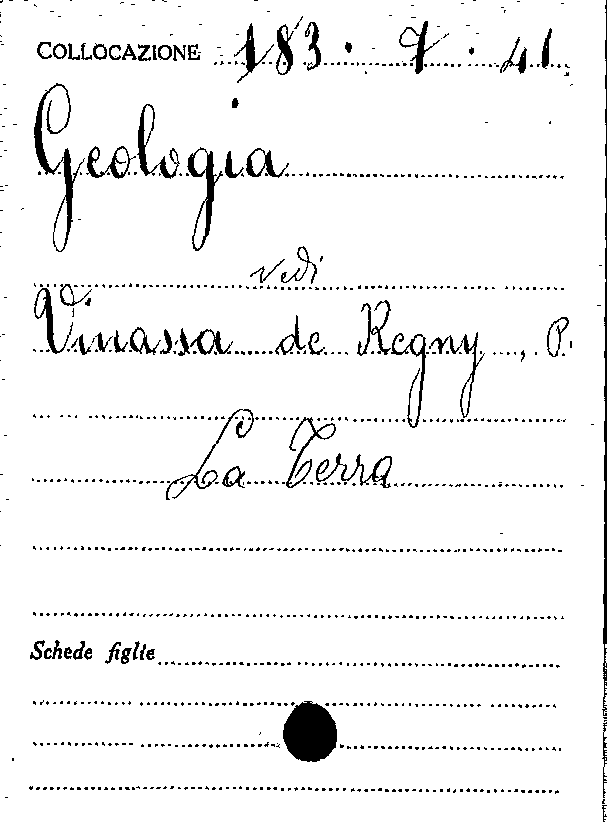 COLLOCAZIONE 183 . 9 . 41
Geologia
vedi
Vinassa de Regny, P.
La Terra
Schede figlie